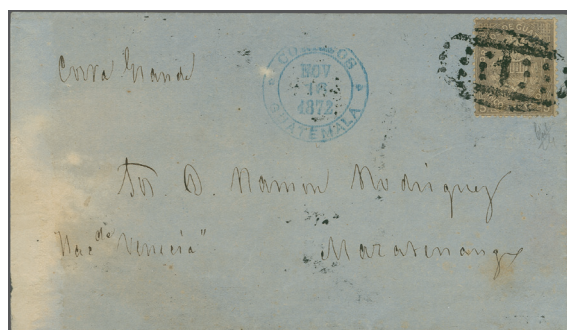 CORREOS
NOV
16
1872
GUATEMALA
1
Sor D. Ramon Rodriguez
Hacda Venecia"
Mazatenango